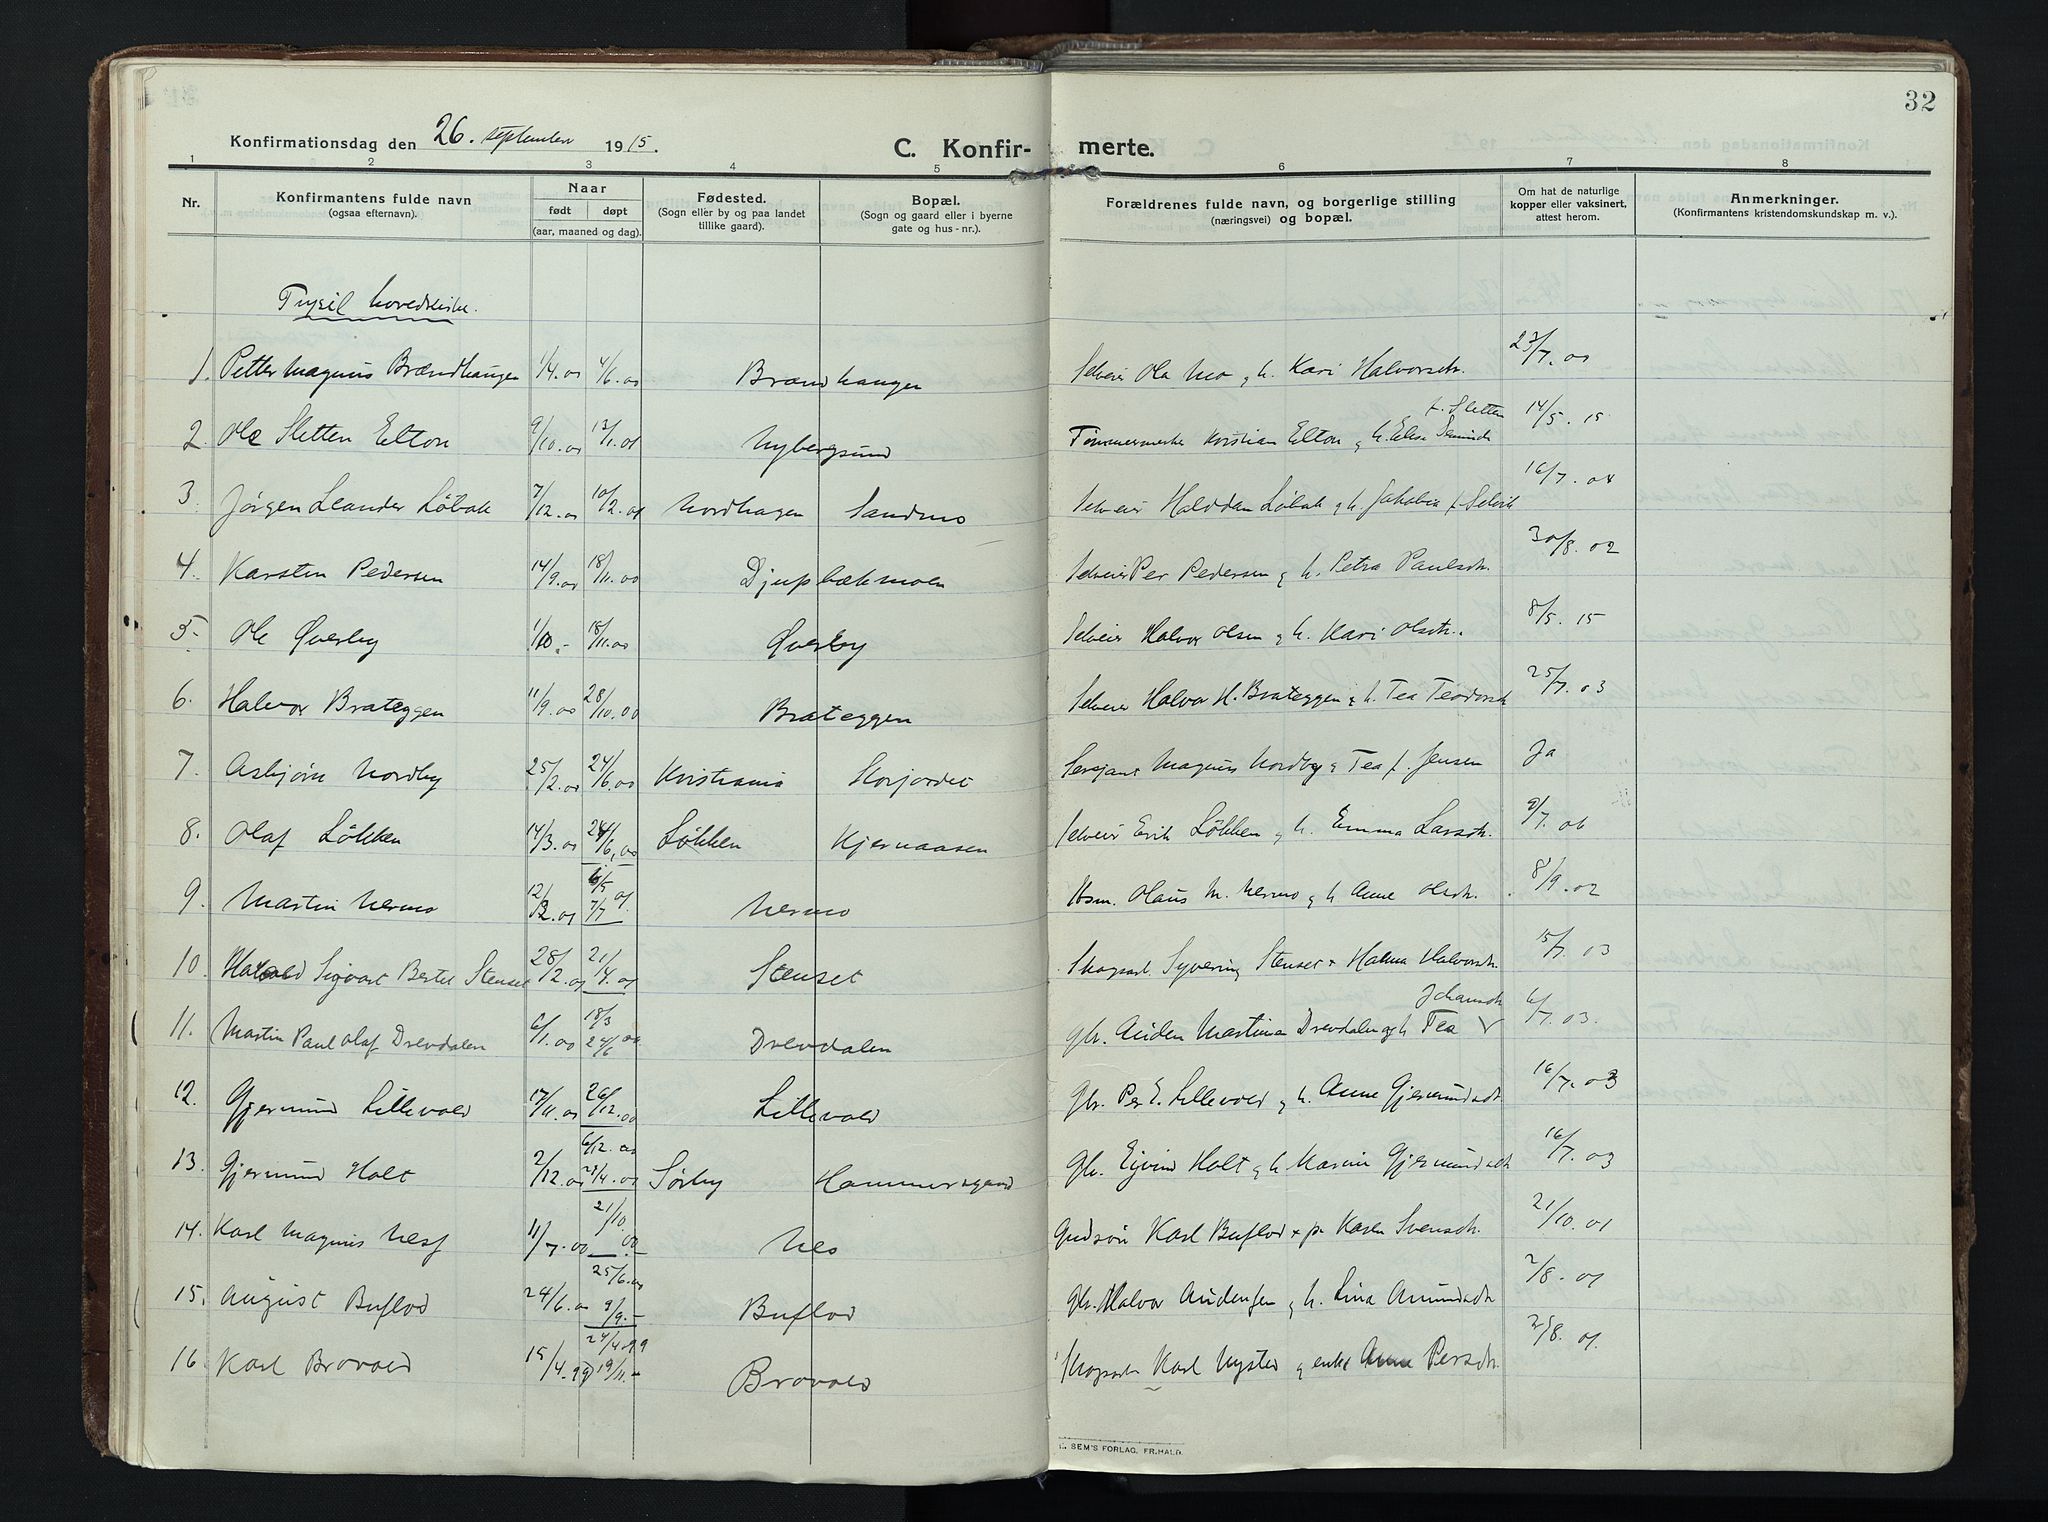 32
Konfirmationsdag den 26. september 1915.
C. Konfir- merte.
1 2 3 4 5 6 7 8
Nr.
Konfirmantens fulde navn
(ogsaa efternavn).
Naar
født døpt
(aar, maaned og dag).
Fødested.
(Sogn eller by og paa landet
tillike gaard).
Bopæl.
(Sogn og gaard eller i byerne
gate og hus-nr.).
Forældrenes fulde navn, og borgerlige stilling
(næringsvei) og bopæl.
Om hat de naturlige
kopper eller vaksinert,
attest herom.
Anmerkninger.
(Konfirmantens kristendomskundskap m. v.).
Trysil hovedkirke.
1. Petter Magnus Brændhaugen 1/4.00 4/6.00 Brændhaugen Selveier Ola Mo og h. Kari Halvorsdtr. 23/7.00
2. Ole Sletten Elton 9/10.00 13/1.01 Nybergsund Tømmermerker Kristian Elton og h. Elise f. Sletten 14/5.15
3. Jørgen Leander Løbak 7/12.00 10/2.01 Nordhagen Sandmo Selveier Halvdan Løbak og h. Jakobia f. Selvik 16/7.04
4. Karsten Pedersen 14/9.00 18/11.00 Djupbækmoen Selveier Per Pedersen og h. Petra Paulsdtr. 30/8.02
5. Ole Øverby 1/10.- 18/11.00 Øverby Selveier Halvor Olsen og h. Kari Olsdtr. 8/5.15
6. Halvor Brateggen 11/9.00 28/10.00 Brateggen Selveier Halvor H. Brateggen og h. Tea Teodorsdtr 25/7.03
7. Asbjørn Nordby 25/2.00 24/6.00 Kristiania Korjordet Sersjant Magnus Nordby og Tea f. Jensen Ja
8. Olaf Løkken 14/3.00 24/6.00 Løkken Kjernaasen Selveier Erik Løkken og h. Emma Larsdtr. 9/7.06
9. Martin Nermo 12/2.01 6/5 7/7 01. Nermo Hsm. Olaus M. Nermo og h. Anne Olsdtr. 8/9.02
10. Harald Sigvart Bertel Stenset 28/12.00 21/4.01 Stenset Skogsarb. Syvering Stenset + Halma Halvorsdtr. 15/7.03
11. Martin Paul Olaf Drevdalen 6/1.00 18/3 24/6 00 Drevdalen Gbr. Auden Martinsen Drevdalen og h. Tea Johansdtr 6/7.03.
12. Gjermund Lillevold 17/11.00 26/12.00 Lillevold Gbr. Per E. Lillevold og h. Anne Gjermundsdtr 16/7.03
13. Gjermund Holt 2/12.00 6/12.00 Sørby Hammersgaard Gbr. Eyvind Holt og h. Marin Gjermundsdtr 16/7.03
14. Karl Magnus 11/7.00 21/10.00 Nes Gudsøn Karl Buflod + pi. Karen Svensdtr. 21/10.01
15. August Buflod 24/6.00 25/6.00 9/9.- Buflod Gbr. Halvor Audensen og h. Lina Amundsdtr 2/8.01
16. Karl Brovold 15/4.99 24/4.99 19/11.- Brovold Skogsarb. Karl Nysted og enke Anne Persdtr. 25/8.01
E. SEM'S FORLAG, FR.HALD.